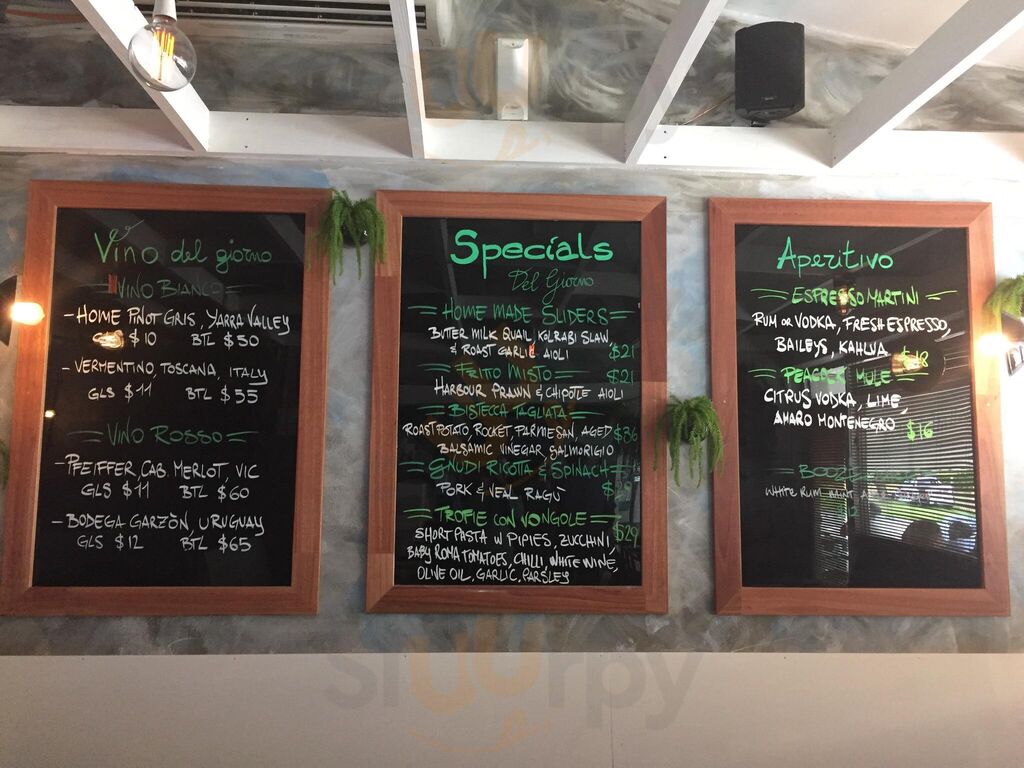 Vino del giorno
VINO BIANCO
- HOME PINOT GRIS, YARRA VALLEY
$10 BTL $50
- VERMENTINO, TOSCANA, ITALY
GLS $11 BTL $55
VINO ROSSO
- PFEIFFER CAB. MERLOT, VIC
GLS $11 BTL $60
- BODEGA GARZÒN, URUGUAY
GLS $12 BTL $65
Specials
Del Giorno
HOME MADE SLIDERS
BUTER MILK QUAIL, KOLRABI SLAW,
& ROAST GARLIC AIOLI $21
FRITO MISTO $21
HARBOUR PRAWN & CHIPOTLE AIOLI
BISTECCA TAGLIATA
ROAST POTATO ROCKET, PARMESAN, AGED $36
BALSAMIC VINEGAR SALMORIGIO
GNUDI RICOTA & SPINACH
PORK & VEAL RAGÙ
TROFIE CON VONGOLE $29
SHORT PASTA W PIPIES, ZUCCHINI
BABY ROMA TOMATOES, CHILLI, WHITE WINE,
OLIVE OIL, GARLIC, PARSLEY
Aperitivo
ESPRESSO MARTINI
RUM OR VODKA, FRESH ESPRESSO,
BAILEYS, KAHLUA $18
PEACOCK MULE
CITRUS VODKA, LIME,
AMARO MONTENEGRO $16
WHITE RUM, MINT
sluurpy